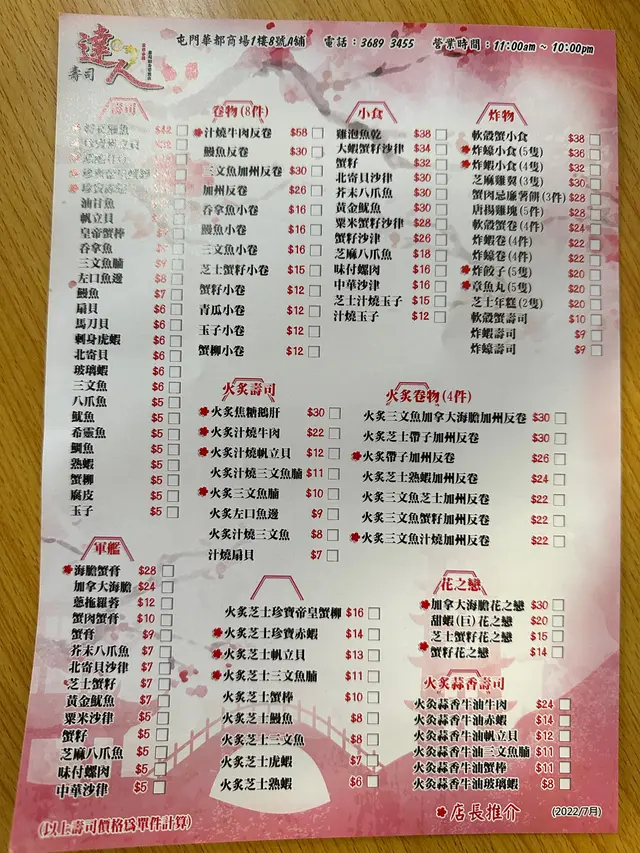 達人
壽司
屯門華都商場1樓8號A舖 電話：3689 3455 營業時間：11:00am ~ 10:00pm
壽司
$42
油甘魚
帆立貝
皇帝蟹棒
吞拿魚
三文魚腩 $9
左口魚邊 $8
鰻魚 $7
扇貝 $6
馬刀貝 $6
刺身虎蝦 $6
北寄貝 $6
玻璃蝦 $6
三文魚 $6
八爪魚 $5
魷魚 $5
希靈魚 $5
鯛魚 $5
熟蝦 $5
蟹柳 $5
腐皮 $5
玉子 $5
卷物 (8件)
汁燒牛肉反卷 $58
鰻魚反卷 $30
三文魚加州反卷 $30
加州反卷 $26
吞拿魚小卷 $16
鰻魚小卷 $16
三文魚小卷 $16
芝士蟹籽小卷 $15
蟹籽小卷 $12
青瓜小卷 $12
玉子小卷 $12
蟹柳小卷 $12
小食
雞泡魚乾 $38
大蝦蟹籽沙律 $34
蟹籽 $32
北寄貝沙律 $30
芥末八爪魚 $30
黃金魷魚 $30
粟米蟹籽沙律 $28
蟹籽沙律 $26
芝麻八爪魚 $18
味付螺肉 $16
中華沙律 $16
芝士汁燒玉子 $15
汁燒玉子 $12
炸物
軟殼蟹小食 $38
炸蠔小食 (5隻) $36
炸蝦小食 (4隻) $32
芝麻雞翼 (3隻) $30
蟹肉忌廉薯餅 (3件) $28
唐揚雞塊 (5件) $28
軟殼蟹卷 (4件) $24
炸蝦卷 (4件) $22
炸蠔卷 (4件) $22
炸餃子 (5隻) $20
章魚丸 (5隻) $20
芝士年糕 (2隻) $20
軟殼蟹壽司 $10
炸蝦壽司 $9
炸蠔壽司 $9
火炙壽司
火炙焦糖鵝肝 $30
火炙汁燒牛肉 $22
火炙汁燒帆立貝 $12
火炙汁燒三文魚腩 $11
火炙三文魚腩 $10
火炙左口魚邊 $9
火炙汁燒三文魚 $8
汁燒扇貝 $7
火炙卷物 (4件)
火炙三文魚加拿大海膽加州反卷 $30
火炙芝士帶子加州反卷 $30
火炙帶子加州反卷 $26
火炙芝士熟蝦加州反卷 $24
火炙三文魚芝士加州反卷 $22
火炙三文魚蟹籽加州反卷 $22
火炙三文魚汁燒加州反卷 $22
軍艦
海膽蟹膏 $28
加拿大海膽 $24
蔥拖羅蓉 $12
蟹肉蟹膏 $10
蟹膏 $9
芥末八爪魚 $7
北寄貝沙律 $7
芝士蟹籽 $7
黃金魷魚 $7
粟米沙律 $5
蟹籽 $5
芝麻八爪魚 $5
味付螺肉 $5
中華沙律 $5
火炙芝士珍寶帝皇蟹柳 $16
火炙芝士珍寶赤蝦 $14
火炙芝士帆立貝 $13
火炙芝士三文魚腩 $11
火炙芝士蟹棒 $10
火炙芝士鰻魚 $8
火炙芝士三文魚 $8
火炙芝士虎蝦 $7
火炙芝士熟蝦 $6
花之戀
加拿大海膽花之戀 $30
甜蝦(巨)花之戀 $20
芝士蟹籽花之戀 $15
蟹籽花之戀 $14
火炙蒜香壽司
火炙蒜香牛油牛肉 $24
火炙蒜香牛油赤蝦 $14
火炙蒜香牛油帆立貝 $12
火炙蒜香牛油三文魚腩 $11
火炙蒜香牛油蟹棒 $11
火炙蒜香牛油玻璃蝦 $8
(以上壽司價格為單件計算)
店長推介
(2022/7月)